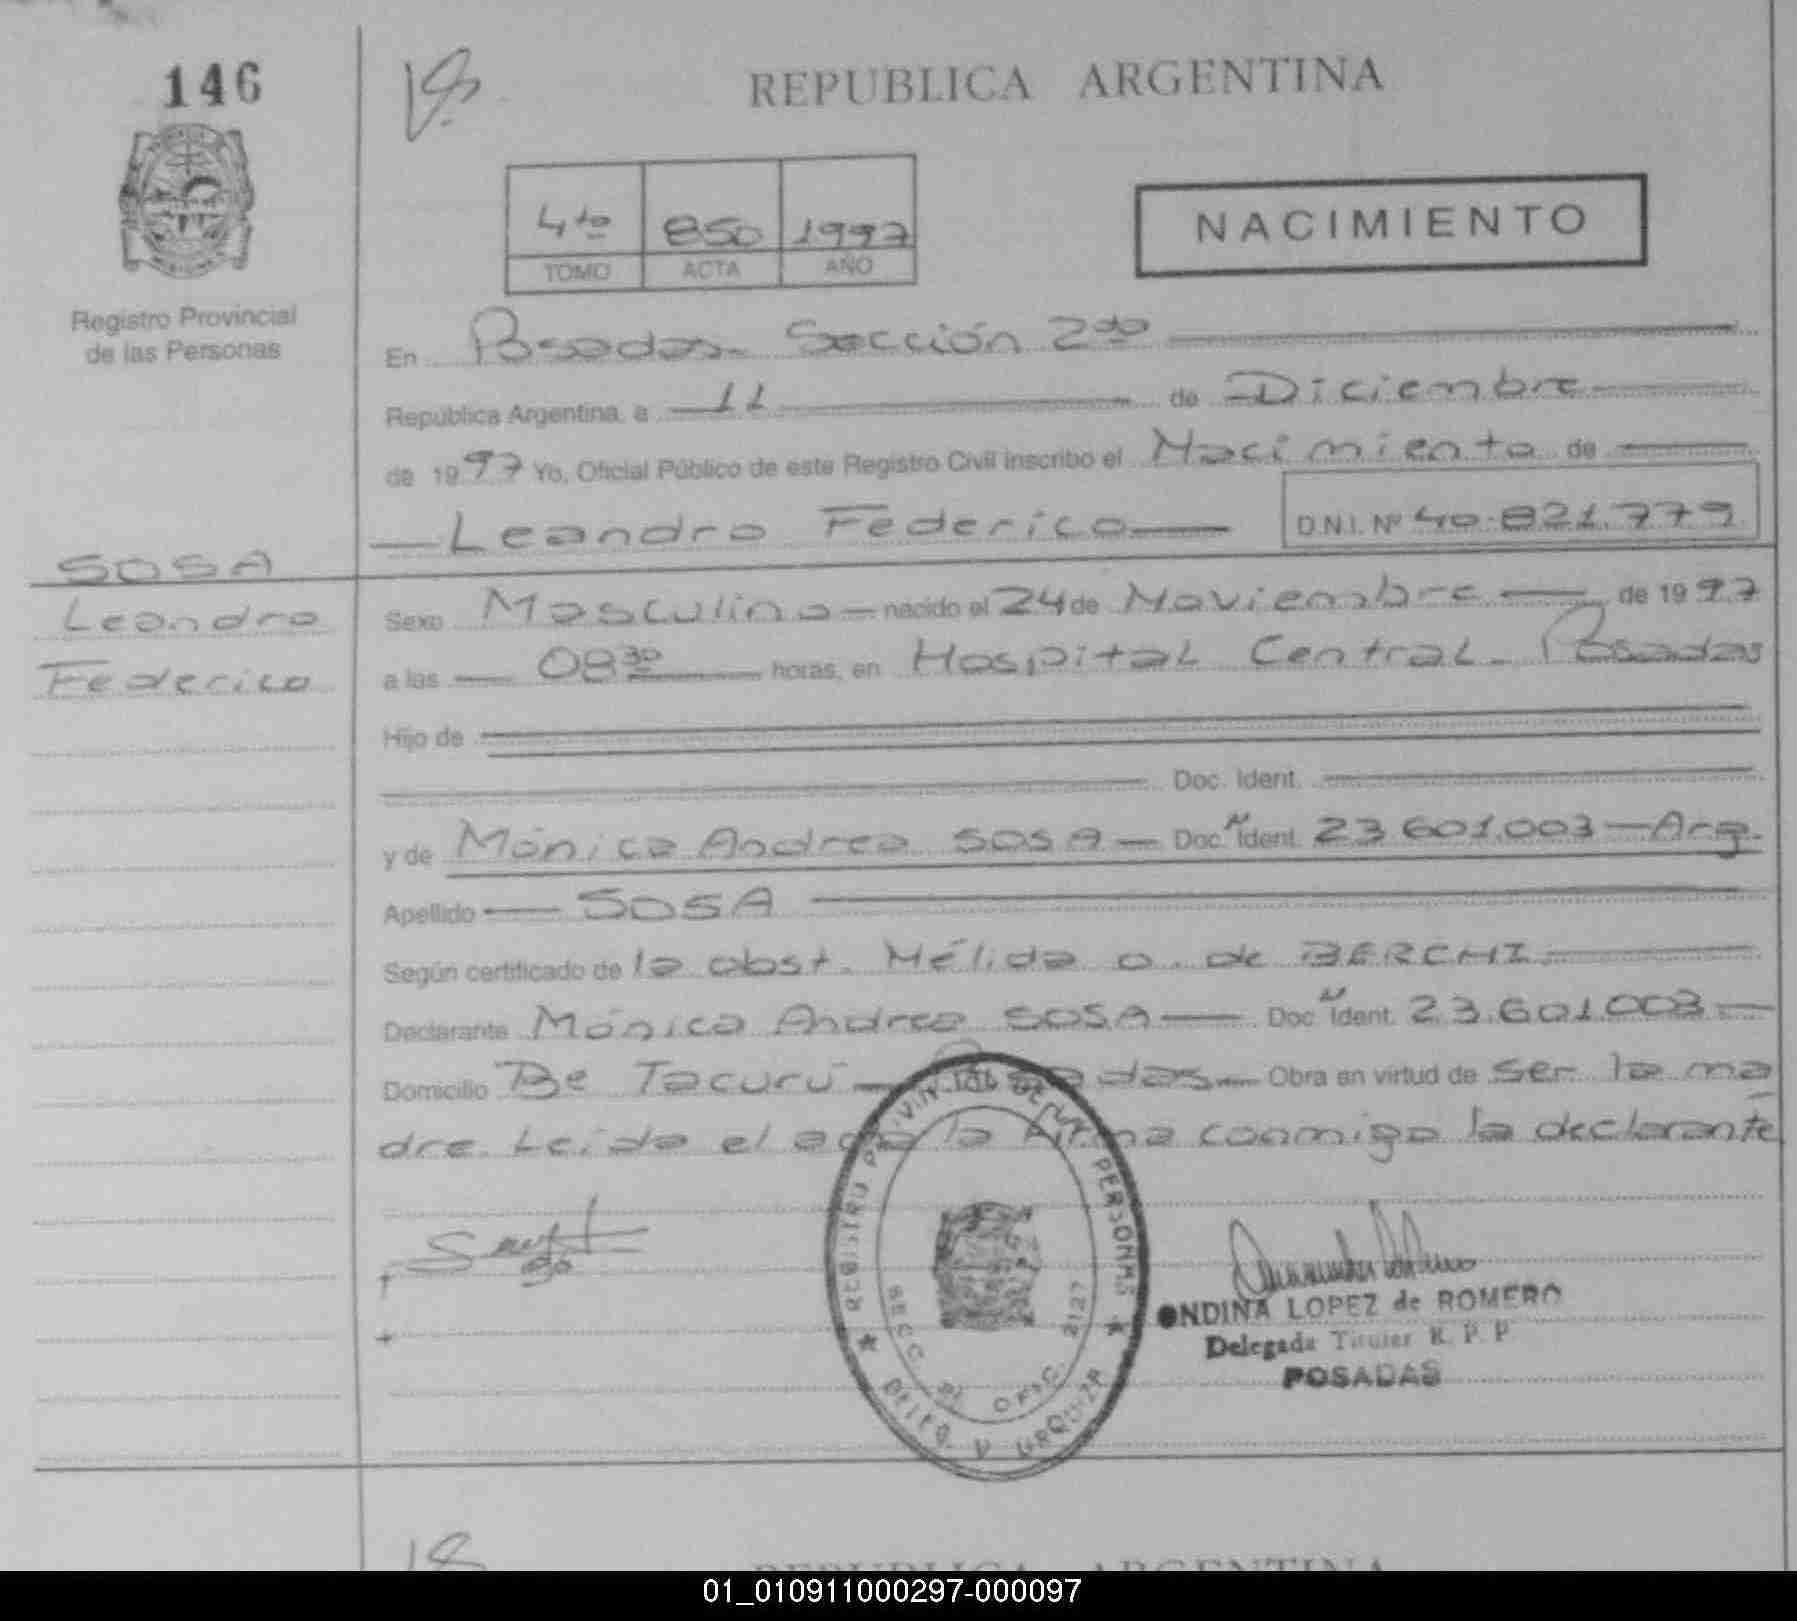 146
REPUBLICA ARGENTINA
4to 850 1997
TOMO ACTA AÑO
NACIMIENTO
Registro Provincial
de las Personas
En Posadas - Sección 2da
República Argentina, a 11 de Diciembre
de 1997 Yo, Oficial Público de este Registro Civil inscribo el Nacimiento de
Leandro Federico D.N.I. Nº 40.821.779
SOSA
Leandro
Federico
Sexo Masculino nacido el 24 de Noviembre de 1997
a las 08 30 horas, en Hospital Central - Posadas
Hijo de
Doc. Ident.
y de Mónica Andrea SOSA Doc. Ident. 23.601.003 - Arg.
Apellido SOSA
Según certificado de la obst. Nélida O. de BERCHI
Declarante Mónica Andrea SOSA Doc. Ident. 23.601.003
Domicilio Bº Tacurú - Posadas Obra en virtud de ser la ma
dre. Leída el acta la firma conmigo la declarante
REGISTRO PROVINCIAL DE LAS PERSONAS
SECC. OFIC. 2127
URQUIZA
ONDINA LOPEZ de ROMERO
Delegada Titular R. P. P
POSADAS
REPUBLICA ARGENTINA
01_010911000297-000097